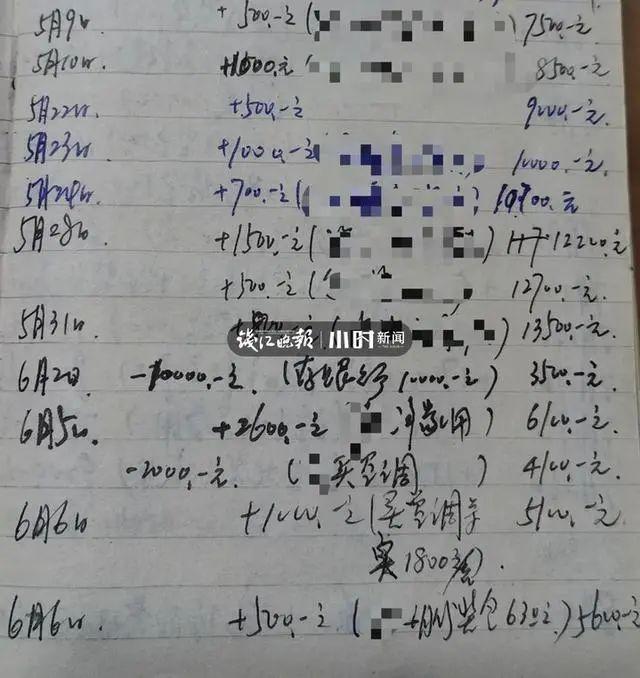 5月9日. +500.-元 ( ) 7500.-元
5月10日. +1000.元 ( 8500.-元
5月22日. +500.-元 9000.-元.
5月23日 +1000.-元 10000.-元.
5月24日. +700.-元 ( 10700.元
5月28日 +1500.-元 ( ) 共计12200.元
+500.-元 ( 12700.-元
5月31日. ) 13500.-元.
钱江晚报 小时新闻
6月2日 -10000.-元. (存银行10000.-元) 3500.-元.
6月5日. +2600.-元 用) 6100.-元.
-2000.-元. ( 买空调 ) 4100.-元.
6月6日 +1000.-元 (买空调 5100.-元
实1800元).
6月6日. +500.-元 ( 红包630元) 5600.-元